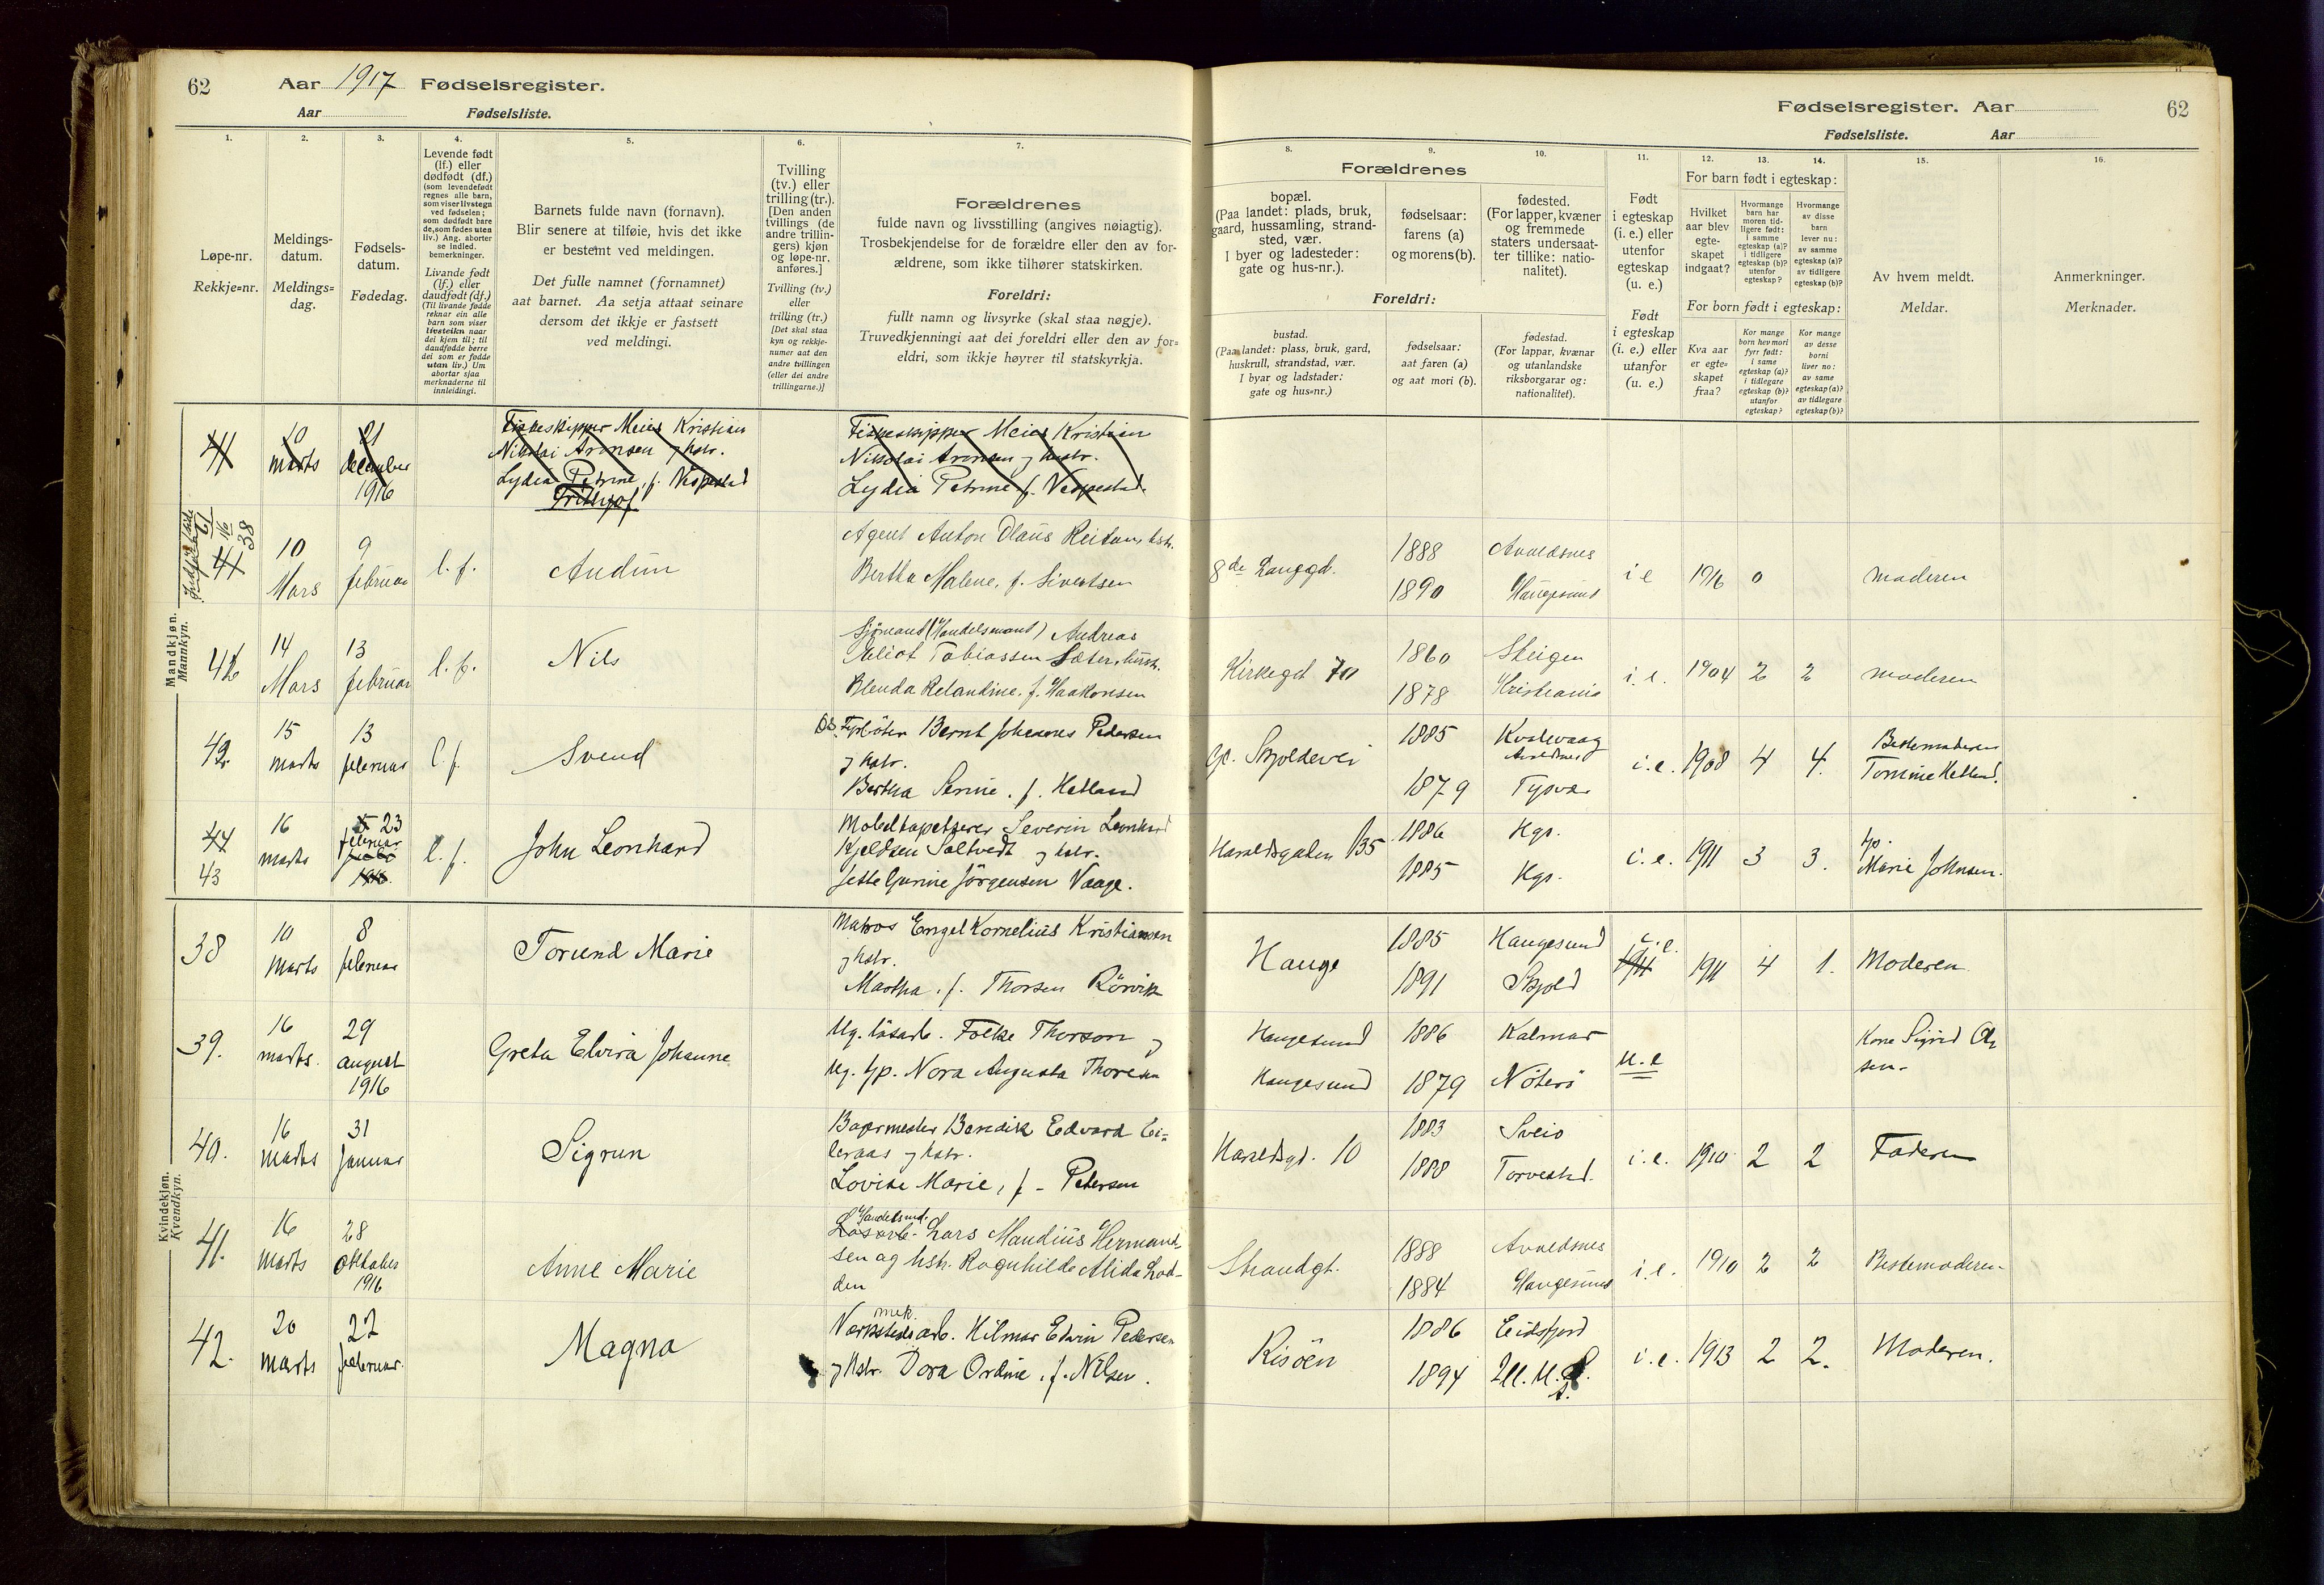 62
Aar 1917 Fødselsregister.
Aar Fødselsliste.
1.
Løpe-nr.
Rekkje=nr.
2.
Meldings-
datum.
Meldings=
dag.
3.
Fødsels-
datum.
Fødedag.
4.
Levende født
(lf.) eller
dødfødt (df.)
(som levendefødt
regnes alle barn,
som viser livstegn
ved fødselen;
som dødfødt bare
de, som fødes uten
liv.) Ang. aborter
se indled.
bemerkninger.
Livande født
(lf.) eller
daudfødt (df.)
(Til livande fødde
reknar ein alle
barn som viser
livsteikn naar
dei kjem til; til
daudfødde berre
dei som er fødde
utan liv.) Um
abortar sjaa
merknaderne til
innleidingi.
5.
Barnets fulde navn (fornavn).
Blir senere at tilføie, hvis det ikke
er bestemt ved meldingen.
Det fulle namnet (fornamnet)
aat barnet. Aa setja attaat seinare
dersom det ikkje er fastsett
ved meldingi.
6.
Tvilling
(tv.) eller
trilling (tr.).
[Den anden
tvillings (de
andre trillin-
gers) kjøn
og løpe-nr.
anføres.]
Tvilling (tv.)
eller
trilling (tr.)
[Det skal staa
kyn og rekkje-
numer aat den
andre tvillingen
(eller dei andre
trillingarne.)]
7.
Forældrenes
fulde navn og livsstilling (angives nøiagtig).
Trosbekjendelse for de forældre eller den av for-
ældrene, som ikke tilhører statskirken.
Foreldri:
fullt namn og livsyrke (skal staa nøgje).
Truvedkjenningi aat dei foreldri eller den av for=
eldri, som ikkje høyrer til statskyrkja.
Fødselsregister. Aar 62
Fødselsliste. Aar
8.
9.
10.
Forældrenes
bopæl.
(Paa landet: plads, bruk,
gaard, hussamling, strand-
sted, vær.
I byer og ladesteder:
gate og hus-nr.).
fødselsaar:
farens (a)
og morens (b).
fødested.
(For lapper, kvæner
og fremmede
staters undersaat-
ter tillike: natio-
nalitet).
Foreldri:
bustad.
(Paa landet: plass, bruk, gard,
huskrull, strandstad, vær.
I byar og ladstader:
gate og hus=nr.)
fødselsaar:
aat faren (a)
og aat mori (b).
fødestad.
(For lappar, kvænar
og utanlandske
riksborgarar og:
nationalitet).
11.
Født
i egteskap
(i. e.) eller
utenfor
egteskap
(u. e.)
Født
i egteskap
(i. e.) eller
utanfor
(u. e.)
12.
13.
14.
For barn født i egteskap:
Hvilket
aar blev
egte-
skapet
indgaat?
Hvormange
barn har
moren tid-
ligere født:
i samme
egteskap (a)?
i tidligere
egteskap (b)?
utenfor
egteskap?
Hvormange
av disse
barn
lever nu:
av samme
egteskap (a)?
av tidligere
egteskap (b)?
For born født i egteskap:
Kva aar
er egte-
skapet
fraa?
Kor mange
born hev mori
fyrr født:
i same
egteskap (a)?
i tidlegare
egteskap (b)?
utanfor
egteskap?
Kor mange
av desse
borni
liver no:
av same
egteskap (a)?
av tidlegare
egteskap (b)?
15.
Av hvem meldt.
Meldar.
16.
Anmerkninger.
Merknader.
Mandkjøn.
Mannkyn.
41 10 marts 21 december 1916
Fiskeskipper Meier Kristian
Nikolai Aronsen og hstr.
Lydia Petrine, f. Vespestad
Frithjof
Fiskeskipper Meier Kristian
Nikolai Aronsen og hustr.
Lydia Petrine f. Vespestad.
38
41 10 Mars 9 februar l. f. Audun
Agent Anton Olaus Reitan, hstr.
Bertha Malene, f. Sivertsen
Langgd. 1888 1890 Avaldsnes Haugesund i e 1916 0 moderen
14 Mars 13 februar l. f. Nils
Sjømand (Handelsmand) Andreas
Tobiassen Sæter, hustr.
Blenda Relandine, f. Haakonsen
Kirkegt 70 1860 1878 Steigen Kristiania i. e. 1904 2 2 moderen
42. 15 marts 13 februar l. f. Svend
Fyrbøter Bernt Johannes Pedersen
og hstr.
Bertha Serine, f. Hetland
Skjoldevei 1885 1879 Kvalevaag Avaldsnes Tysvær i. e. 1908 4 4.
Bestemoderen
Tomine Hetland.
44 43 16 marts 23 februar 1916 l. f. John Leonhard
Møbeltapetserer Severin Leonhard
Kjeldsen Saltvedt og hstr.
Jette Gurine Jörgensen Vaage.
Haraldsgaten 135 1886 1885 Hgs. Hgs. i. e. 1911 3 3.
Marie Johnsen.
Kvindekjøn.
Kvendkyn.
38 10 Marts 8 februar Torund Marie
Matros Engel Kornelius Kristiansen
og hstr.
Martha, f. Thorsen Rörvik
Hauge 1885 1891 Haugesund Skjold i. e. 1911 1911 4 1. Moderen
39. 16 marts. 29 august 1916 Greta Elvira Johanne
Ug. løsarb. Folke Thorson og
Ug. tjp. Nora Augusta Thoresen
Haugesund Haugesund 1886 1879 Kalmar Nöterö u. e
Kone Sigrid
40. 16 marts 31 januar Sigrun
Bagermester Benedik Edvard Ei=
leraas og hstr.
Lovise Marie, f. Petersen
Haraldsgt. 10 1883 1888 Sveio Torvestad. i. e. 1910 2 2 Faderen
41. 16 marts 28 oktober 1916 Anne Marie
Handelsmd.
Løsarb. Lars Mandius Hermand-
sen og hstr. Ragnhilde Alida Lod-
den
Strandgt. 1888 1884 Avaldsnes Haugesund i. e. 1910 2 2 Bestemoderen
42. 20 marts 22 februar. Magna
mek.
Verkstedsarb. Hilmar Edvin Pedersen
og hstr. Dora Ordine, f. Nilsen.
Risöen 1886 1894 Eidsfjord i. e. 1913 2 2. Moderen.